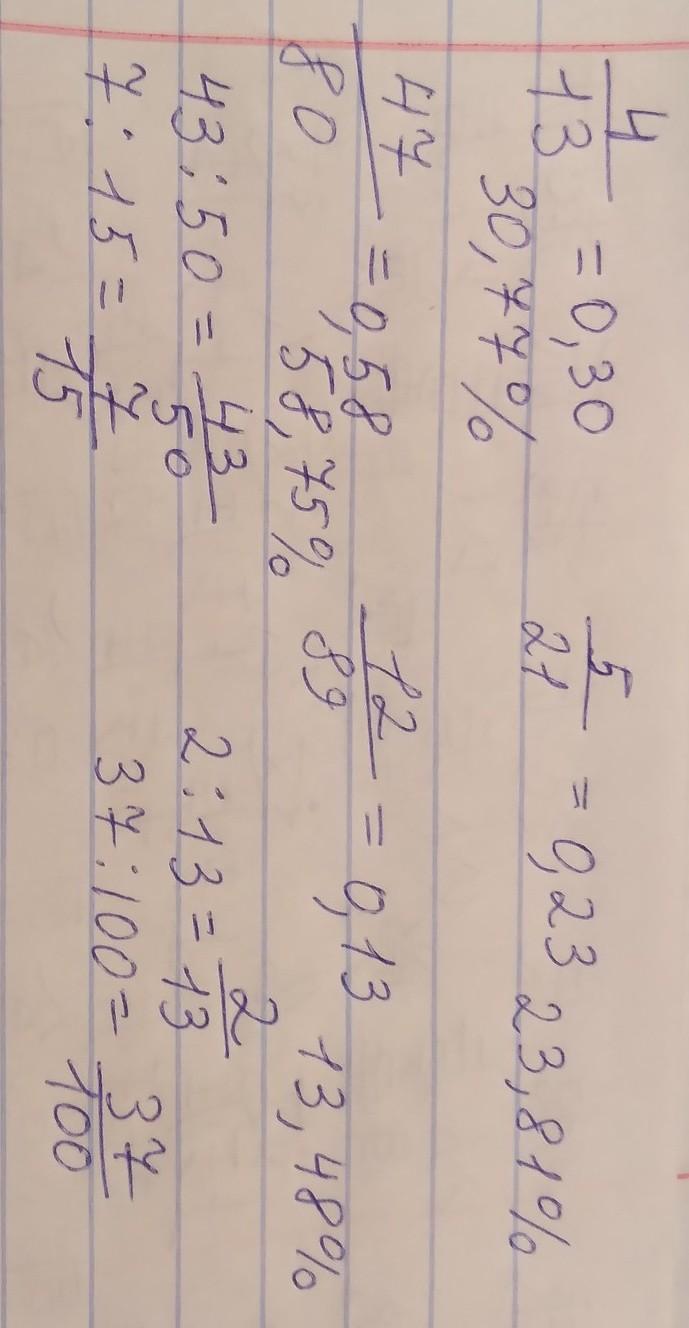 4/13 = 0,30 5/21 = 0,23 23,81%
30,77%
47/80 = 0,58 12/89 = 0,13
58,75% 13,48%
43:50 = 43/50 2:13 = 2/13
7:15 = 7/15 37:100 = 37/100